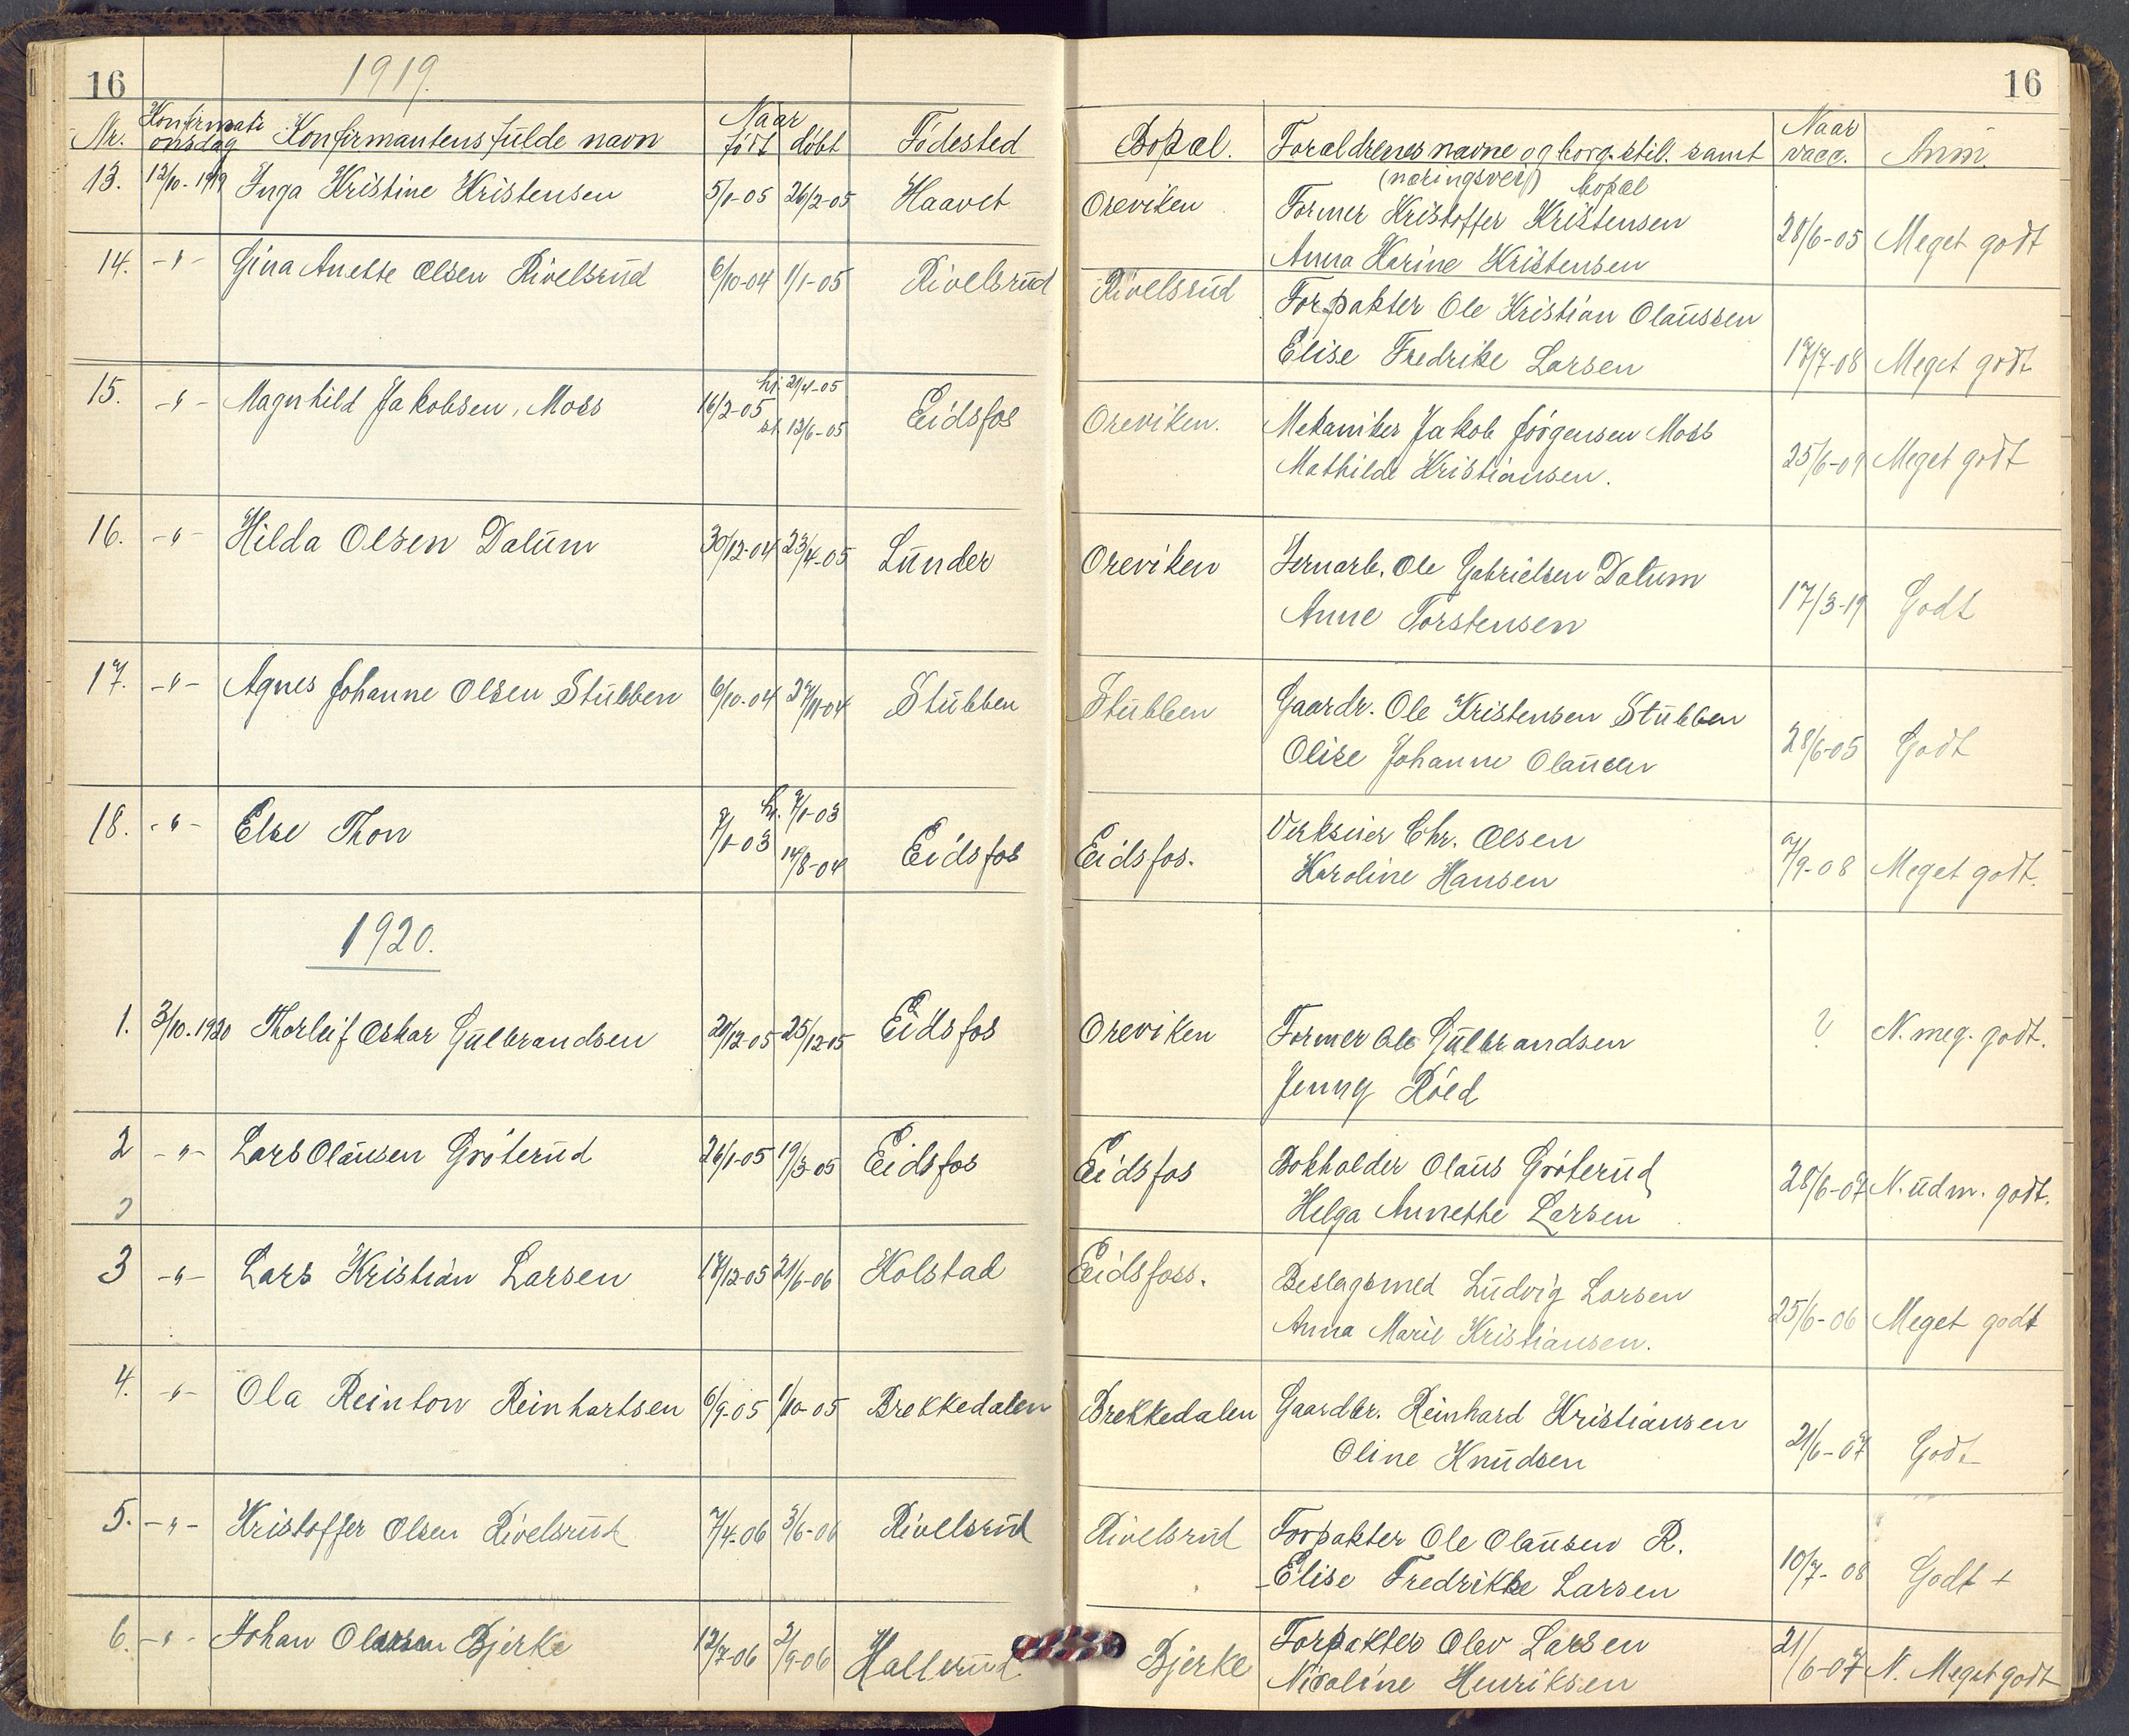 16
1919.
Nr. Konfirmationsdag Konfirmantens fulde navn Naar født døbt Fødested
13. 12/10-1919 Inga Kristine Kristensen 5/1-05 26/2-05 Haavet
14. -"- Gina Anette Olsen Rivelsrud 6/10-04 1/1-05 Rivelsrud
15. -"- Magnhild Jakobsen, Moss 16/2-05 hj. 21/4-05 st. 12/6-05 Eidsfos
16. -"- Hilda Olsen Dalum 30/12-04 23/4-05 Lunder
17. -"- Agnes Johanne Olsen Stubben 6/10-04 27/11-04 Stubben
18. -"- Else Thon 9/1-03 hj. 9/1-03 14/8-04 Eidsfos
1920.
1. 3/10-1920 Thorleif Oskar Gulbrandsen 21/12-05 25/12-05 Eidsfos
2 -"- Lars Olausen Gróterud 26/1-05 19/3-05 Eidsfos
3 -"- Lars Kristian Larsen 17/12-05 21/6-06 Holstad
4. -"- Ola Reinton Reinhartsen 6/9-05 1/10-05 Brekkedalen
5. -"- Kristoffer Olsen Rivelsrud 7/4-06 3/6-06 Rivelsrud
6. -"- Johan Olassen Bjerke 12/7-06 2/9-06 Hallerud
16
Bopæl. Forældrenes navne og borg. stil. samt Naar vacc. Anm.
(næringsvei) bopæl
Oreviken Former Kristoffer Kristensen
Anna Karine Kristensen 28/6-05 Meget godt
Rivelsrud Forpakter Ole Kristian Olaussen
Elise Fredrike Larsen 17/7-08 Meget godt
Oreviken. Mekaniker Jakob Jörgensen Moss
Mathilde Kristiansen. 25/6-09 Meget godt
Oreviken Jernarb. Ole Gabrielsen Dalum
Anne Torstensen 17/3-19 Godt
Stubben Gaardr. Ole Kristensen Stubben
Olise Johanne Olausen 28/6-05 Godt
Eidsfos. Verkseier Chr. Olsen
Karoline Hansen 9/9-08 Meget godt.
Oreviken Former Ole Gulbrandsen ? N. meg. godt.
Jenny Röed
Eidsfos Bokholder Olaus Gróterud
Helga Annethe Larsen 28/6-07 N. udm. godt.
Eidsfoss. Beslagsmed Ludvig Larsen
Anna Marie Kristiansen. 25/6-06 Meget godt
Brekkedalen Gaardbr. Reinhard Kristiansen
Oline Knudsen 21/6-07 Godt
Rivelsrud Forpakter Ole Olausen R.
Elise Fredrikke Larsen 10/7-08 Godt +
Bjerke Forpakter Olev Larsen
Nicoline Henriksen 21/6-07 N. Meget godt